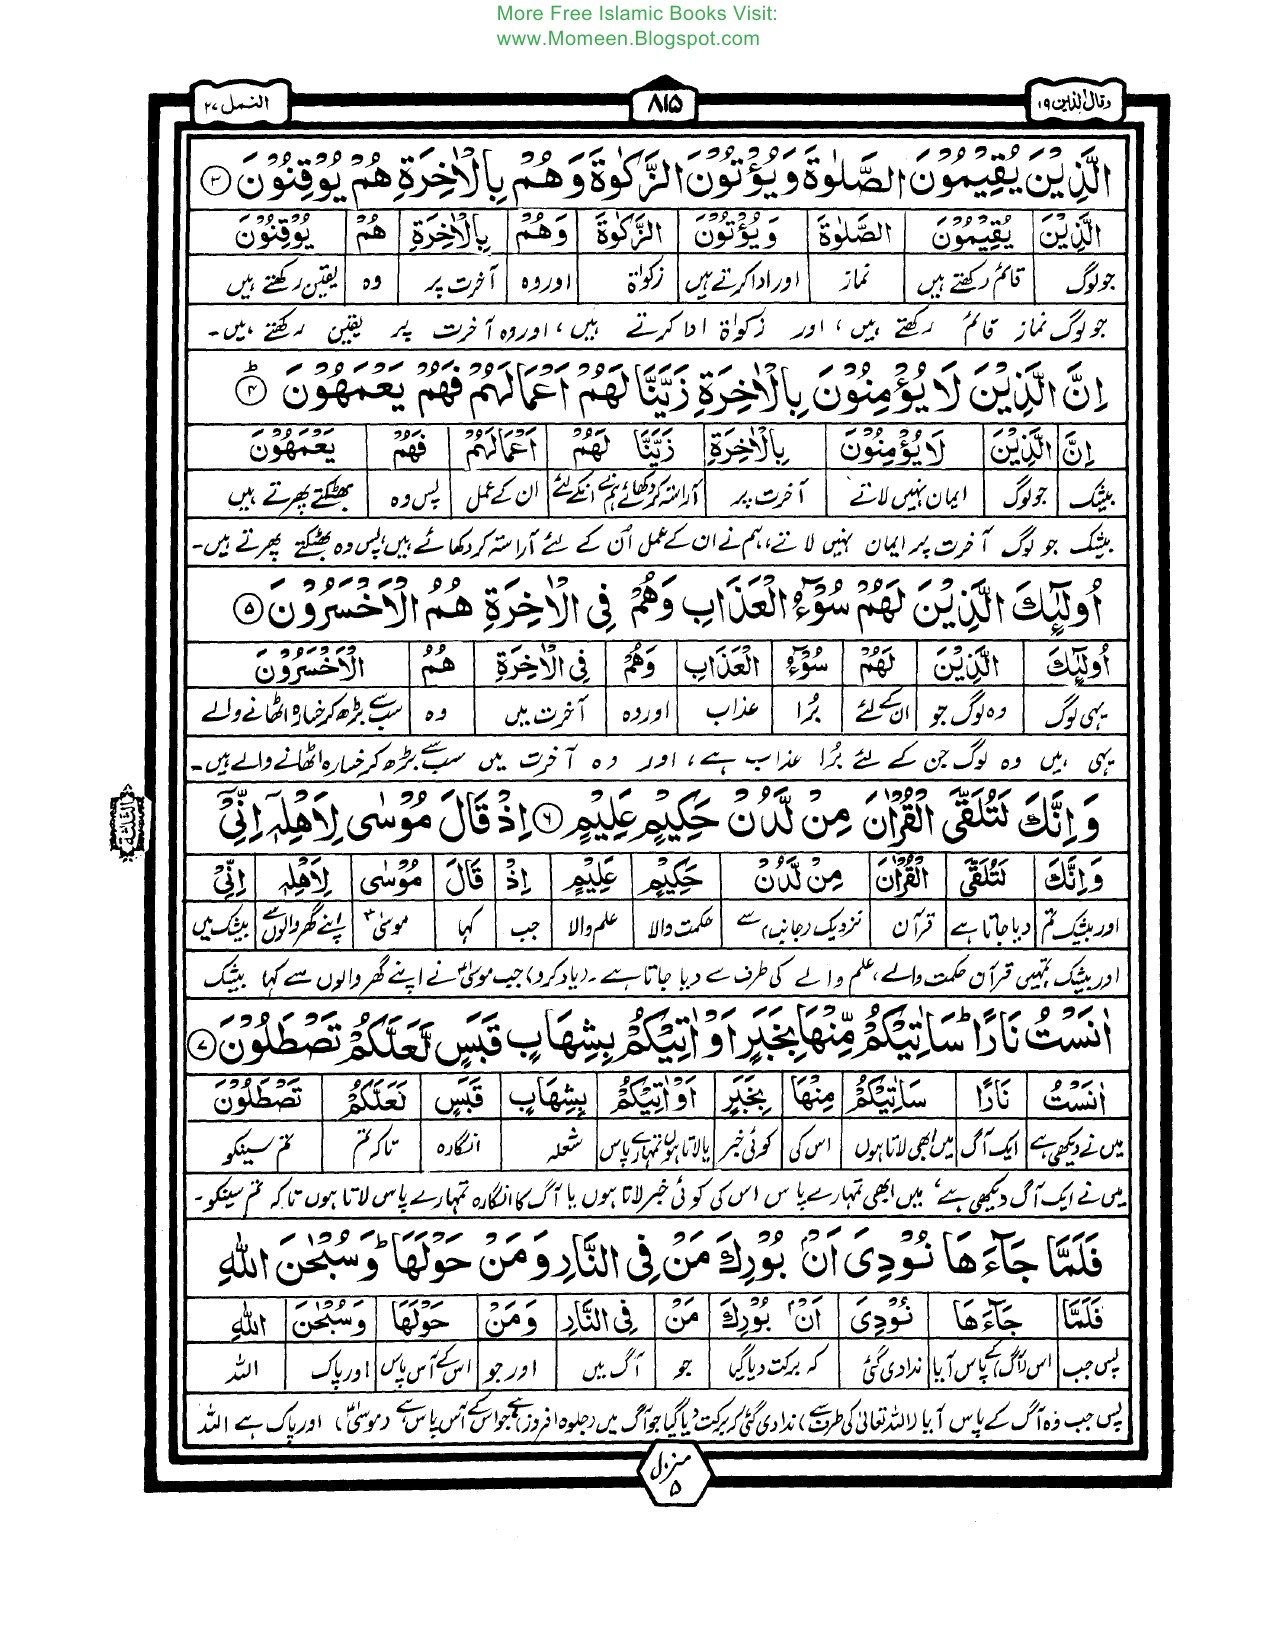 More Free Islamic Books Visit:
www.Momeen.Blogspot.com
وقال الذین ۱۹ ۸۱۵ النمل ۲۷
الَّذِيْنَ يُقِيْمُوْنَ الصَّلٰوةَ وَيُؤْتُوْنَ الزَّكٰوةَ وَهُمْ بِالْاٰخِرَةِ هُمْ يُوْقِنُوْنَ ۳
الَّذِيْنَ يُقِيْمُوْنَ الصَّلٰوةَ وَيُؤْتُوْنَ الزَّكٰوةَ وَهُمْ بِالْاٰخِرَةِ هُمْ يُوْقِنُوْنَ
جو لوگ قائم رکھتے ہیں نماز اور ادا کرتے ہیں زکوٰۃ اور وہ آخرت پر وہ یقین رکھتے ہیں
جو لوگ نماز قائم رکھتے ہیں، اور زکوٰۃ ادا کرتے ہیں، اور وہ آخرت پر یقین رکھتے ہیں۔
اِنَّ الَّذِيْنَ لَا يُؤْمِنُوْنَ بِالْاٰخِرَةِ زَيَّنَّا لَهُمْ اَعْمَالَهُمْ فَهُمْ يَعْمَهُوْنَ ۴ؕ
اِنَّ الَّذِيْنَ لَا يُؤْمِنُوْنَ بِالْاٰخِرَةِ زَيَّنَّا لَهُمْ اَعْمَالَهُمْ فَهُمْ يَعْمَهُوْنَ
بیشک جو لوگ ایمان نہیں لاتے آخرت پر آراستہ کر دکھائے ہم نے انکے لئے ان کے عمل پس وہ بھٹکتے پھرتے ہیں
بیشک جو لوگ آخرت پر ایمان نہیں لاتے، ہم نے ان کے عمل اُن کے لئے آراستہ کر دکھائے ہیں، پس وہ بھٹکتے پھرتے ہیں۔
اُولٰٓئِكَ الَّذِيْنَ لَهُمْ سُوْٓءُ الْعَذَابِ وَهُمْ فِي الْاٰخِرَةِ هُمُ الْاَخْسَرُوْنَ ۵
اُولٰٓئِكَ الَّذِيْنَ لَهُمْ سُوْٓءُ الْعَذَابِ وَهُمْ فِي الْاٰخِرَةِ هُمُ الْاَخْسَرُوْنَ
یہی لوگ وہ لوگ جو ان کے لئے بُرا عذاب اور وہ آخرت میں وہ سب سے بڑھ کر خسارہ اٹھانے والے
یہی ہیں وہ لوگ جن کے لئے بُرا عذاب ہے، اور وہ آخرت میں سب سے بڑھ کر خسارہ اٹھانے والے ہیں۔
وَاِنَّكَ لَتُلَقَّى الْقُرْاٰنَ مِنْ لَّدُنْ حَكِيْمٍ عَلِيْمٍ ۶ اِذْ قَالَ مُوْسٰى لِاَهْلِهٖٓ اِنِّيْٓ
الثلثة
وَاِنَّكَ لَتُلَقَّى الْقُرْاٰنَ مِنْ لَّدُنْ حَكِيْمٍ عَلِيْمٍ اِذْ قَالَ مُوْسٰى لِاَهْلِهٖ اِنِّيْ
اور بیشک تم دیا جاتا ہے قرآن نزدیک (جانب) سے حکمت والا علم والا جب کہا موسیٰؑ اپنے گھر والوں سے بیشک میں
اور بیشک تمہیں قرآن حکمت والے، علم والے کی طرف سے دیا جاتا ہے۔ (یاد کرو) جب موسیٰؑ نے اپنے گھر والوں سے کہا بیشک
اٰنَسْتُ نَارًا ؕ سَاٰتِيْكُمْ مِّنْهَا بِخَبَرٍ اَوْ اٰتِيْكُمْ بِشِهَابٍ قَبَسٍ لَّعَلَّكُمْ تَصْطَلُوْنَ ۷
اٰنَسْتُ نَارًا سَاٰتِيْكُمْ مِنْهَا بِخَبَرٍ اَوْ اٰتِيْكُمْ بِشِهَابٍ قَبَسٍ لَعَلَّكُمْ تَصْطَلُوْنَ
میں نے دیکھی ہے ایک آگ میں ابھی لاتا ہوں اس کی کوئی خبر یا لاتا ہوں تمہارے پاس شعلہ انگارہ تاکہ تم تم سینکو
میں نے ایک آگ دیکھی ہے، میں ابھی تمہارے پاس اس کی کوئی خبر لاتا ہوں یا آگ کا انگارہ تمہارے پاس لاتا ہوں تاکہ تم سینکو۔
فَلَمَّا جَآءَهَا نُوْدِيَ اَنْۢ بُوْرِكَ مَنْ فِي النَّارِ وَمَنْ حَوْلَهَا ؕ وَسُبْحٰنَ اللّٰهِ
فَلَمَّا جَآءَهَا نُوْدِيَ اَنْۢ بُوْرِكَ مَنْ فِي النَّارِ وَمَنْ حَوْلَهَا وَسُبْحٰنَ اللّٰهِ
پس جب اس (آگ) کے پاس آیا ندا دی گئی کہ برکت دیا گیا جو آگ میں اور جو اس کے آس پاس اور پاک اللہ
پس جب وہ آگ کے پاس آیا (اللہ تعالیٰ کی طرف سے) ندا دی گئی کہ برکت دیا گیا جو آگ میں (جلوہ افروز) ہے جو اس کے آس پاس ہے (موسیٰؑ) اور پاک ہے اللہ
منزل ۵